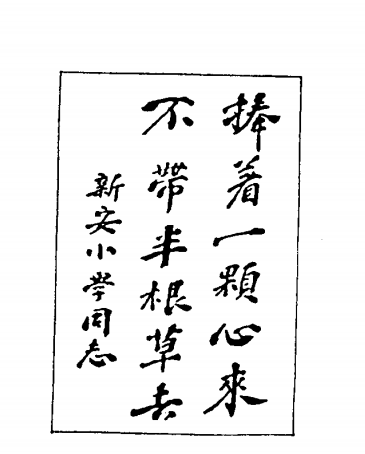 捧着一顆心來
不帶半根草去
新安小學同志